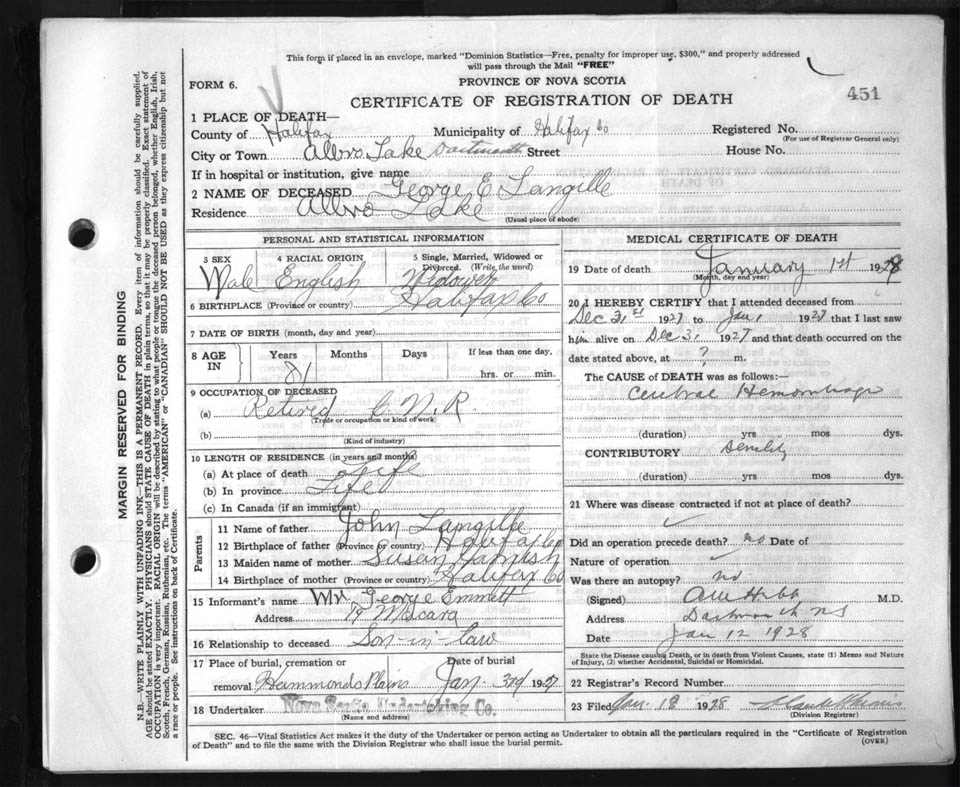 This form if placed in an envelope, marked "Dominion Statistics—Free, penalty for improper use, $300," and properly addressed
will pass through the Mail "FREE"
FORM 6.
PROVINCE OF NOVA SCOTIA
CERTIFICATE OF REGISTRATION OF DEATH
451
1 PLACE OF DEATH—
County of Halifax Municipality of Halifax Co Registered No.
(For use of Registrar General only)
City or Town Albro Lake Dartmouth Street House No.
If in hospital or institution, give name
2 NAME OF DECEASED George E. Langille
Residence Albro Lake
(Usual place of abode)
PERSONAL AND STATISTICAL INFORMATION
3 SEX 4 RACIAL ORIGIN 5 Single, Married, Widowed or
Divorced. (Write the word)
Male English Widower
6 BIRTHPLACE (Province or country) Halifax Co
7 DATE OF BIRTH (month, day and year)
8 AGE IN Years Months Days If less than one day,
81 hrs. or min.
9 OCCUPATION OF DECEASED
(a) Retired C.N.R.
(Trade or occupation or kind of work)
(b)
(Kind of industry)
10 LENGTH OF RESIDENCE (in years and months)
(a) At place of death Life
(b) In province Life
(c) In Canada (if an immigrant)
Parents
11 Name of father John Langille
12 Birthplace of father (Province or country) Halifax Co
13 Maiden name of mother Susan
14 Birthplace of mother (Province or country) Halifax Co
15 Informant's name George Emmett
Address
16 Relationship to deceased Son-in-law
17 Place of burial, cremation or Date of burial
removal Hammonds Plains Jan. 3rd 1927
18 Undertaker Nova Scotia Undertaking Co.
(Name and address)
MEDICAL CERTIFICATE OF DEATH
19 Date of death January 1st 1928
(Month, day and year)
20 I HEREBY CERTIFY that I attended deceased from
Dec 31st 1927 to Jan 1 1927 that I last saw
him alive on Dec 31 1927 and that death occurred on the
date stated above, at ? m.
The CAUSE of DEATH was as follows:—
Cerebral Hemorrhage
(duration) yrs mos dys.
CONTRIBUTORY Senility
(duration) yrs mos dys.
21 Where was disease contracted if not at place of death?
Did an operation precede death? no Date of
Nature of operation
Was there an autopsy? no
(Signed) M.D.
Address Dartmouth NS
Date Jan 12 1928
State the Disease causing Death, or in death from Violent Causes, state (1) Means and Nature
of Injury, (2) whether Accidental, Suicidal or Homicidal.
22 Registrar's Record Number
23 Filed Jan. 18 1928
(Division Registrar)
SEC. 46—Vital Statistics Act makes it the duty of the Undertaker or person acting as Undertaker to obtain all the particulars required in the "Certificate of Registration
of Death" and to file the same with the Division Registrar who shall issue the burial permit.
(OVER)
MARGIN RESERVED FOR BINDING
N.B.—WRITE PLAINLY WITH UNFADING INK—THIS IS A PERMANENT RECORD. Every item of information should be carefully supplied.
AGE should be stated EXACTLY. PHYSICIANS should STATE CAUSE OF DEATH in plain terms, so that it may be properly classified. Exact statement of
OCCUPATION is very important. RACIAL ORIGIN will be described by stating to what people or tongue the deceased person belonged, whether English, Irish,
Scotch, French, German, Russian, Ruthenian, etc. The terms "AMERICAN" or "CANADIAN" SHOULD NOT BE USED as they express citizenship but not
a race or people. See instructions on back of Certificate.